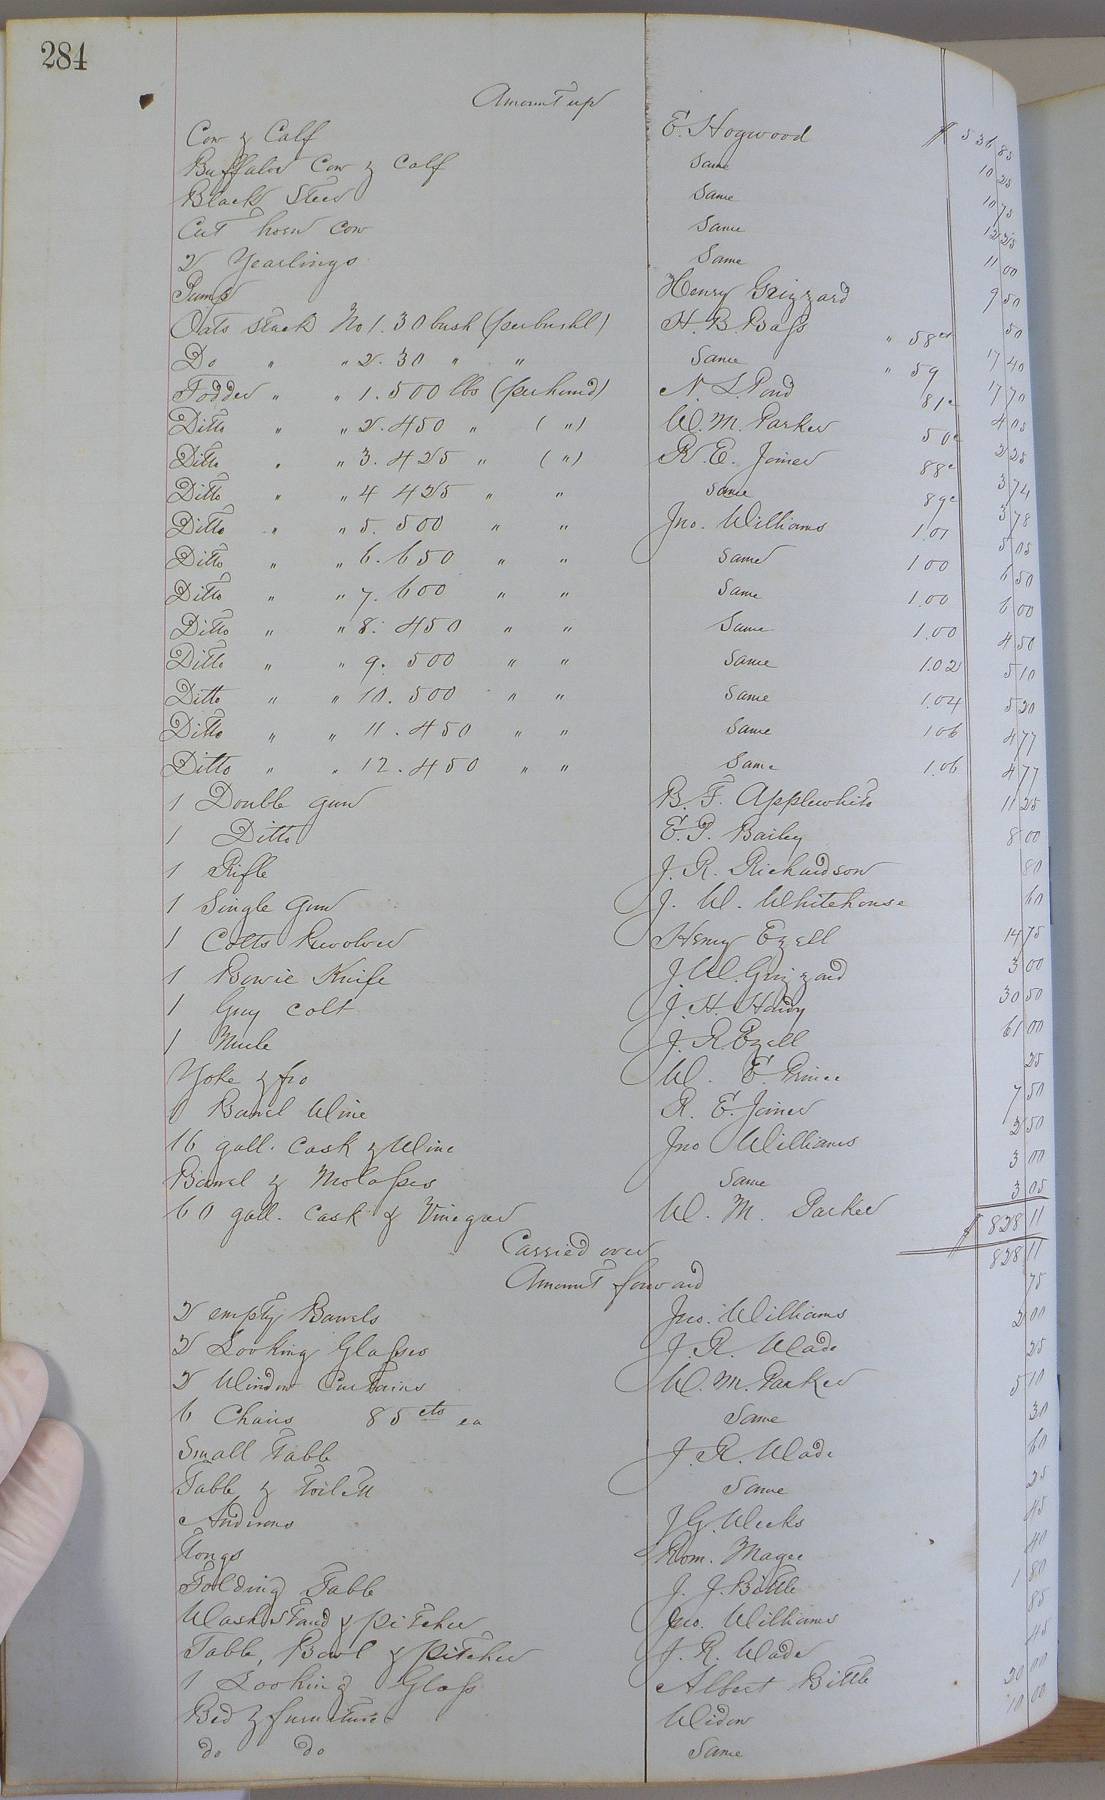 284
Amount up $ 536 85
Cow & Calf E. Hogwood 10 25
Buffalo Cow & Calf Same 10 75
Black Steer Same 12 25
Cut horn Cow Same 11 00
2 Yearlings Same 9 50
Pump Henry Grizzard 50
Oats Stack No 1. 30 bush (per bushl) H. B. Bass " 58cts 17 40
Do " " 2. 30 " " Same " 59 17 70
Fodder " " 1. 500 lbs (per hund) N. L. Pond 81c 4 05
Ditto " " 2. 450 " ( " ) W. M. Parker 50c 2 25
Ditto " " 3. 425 " ( " ) R. E. Joiner 88c 3 74
Ditto " " 4 425 " " Same 89c 3 78
Ditto " " 5. 500 " " Jno. Williams 1.01 5 05
Ditto " " 6. 650 " " Same 1 00 6 50
Ditto " " 7. 600 " " Same 1.00 6 00
Ditto " " 8. 450 " " Same 1.00 4 50
Ditto " " 9. 500 " " Same 1.02 5 10
Ditto " " 10. 500 " " Same 1.04 5 20
Ditto " " 11. 450 " " Same 1 06 4 77
Ditto " " 12. 450 " " Same 1.06 4 77
1 Double gun B. F. Applewhite 11 25
1 Ditto E. P. Bailey 8 00
1 Rifle J. R. Richardson 80
1 Single Gun J. W. Whitehouse 60
1 Colts Revolver Henry Ezell 14 75
1 Bowie Knife J. W. Grizzard 3 00
1 Grey Colt J. H. Hardy 30 50
1 Mule J. R. Ezell 61 00
Yoke & fro W. E. Prince 25
1 Barrel Wine R. E. Joiner 7 50
16 gall. Cask & Wine Jno Williams 2 50
Barrel & Molasses Same 3 00
60 gall. Cask & Vinegar W. M. Parker 3 05
Carried over $ 828 11
Amount forward 828 11
2 empty Barrels Jno. Williams 75
2 Looking Glasses J. R. Wade 2 00
2 Window Curtains W. M. Parker 25
6 Chairs 85 cts ea Same 5 10
Small Table J. R. Wade 30
Table & Toilett Same 60
Andirons J G. Weeks 25
Tongs Rom. Magee 45
Folding Table J. J. Bittle 40
Wash Stand & pitcher Jno. Williams 1 80
Table, Bowl & Pitcher J. R. Wade 85
1 Looking Glass Albert Bittle 45
Bed & furniture Widow 20 00
do do Same 10 00